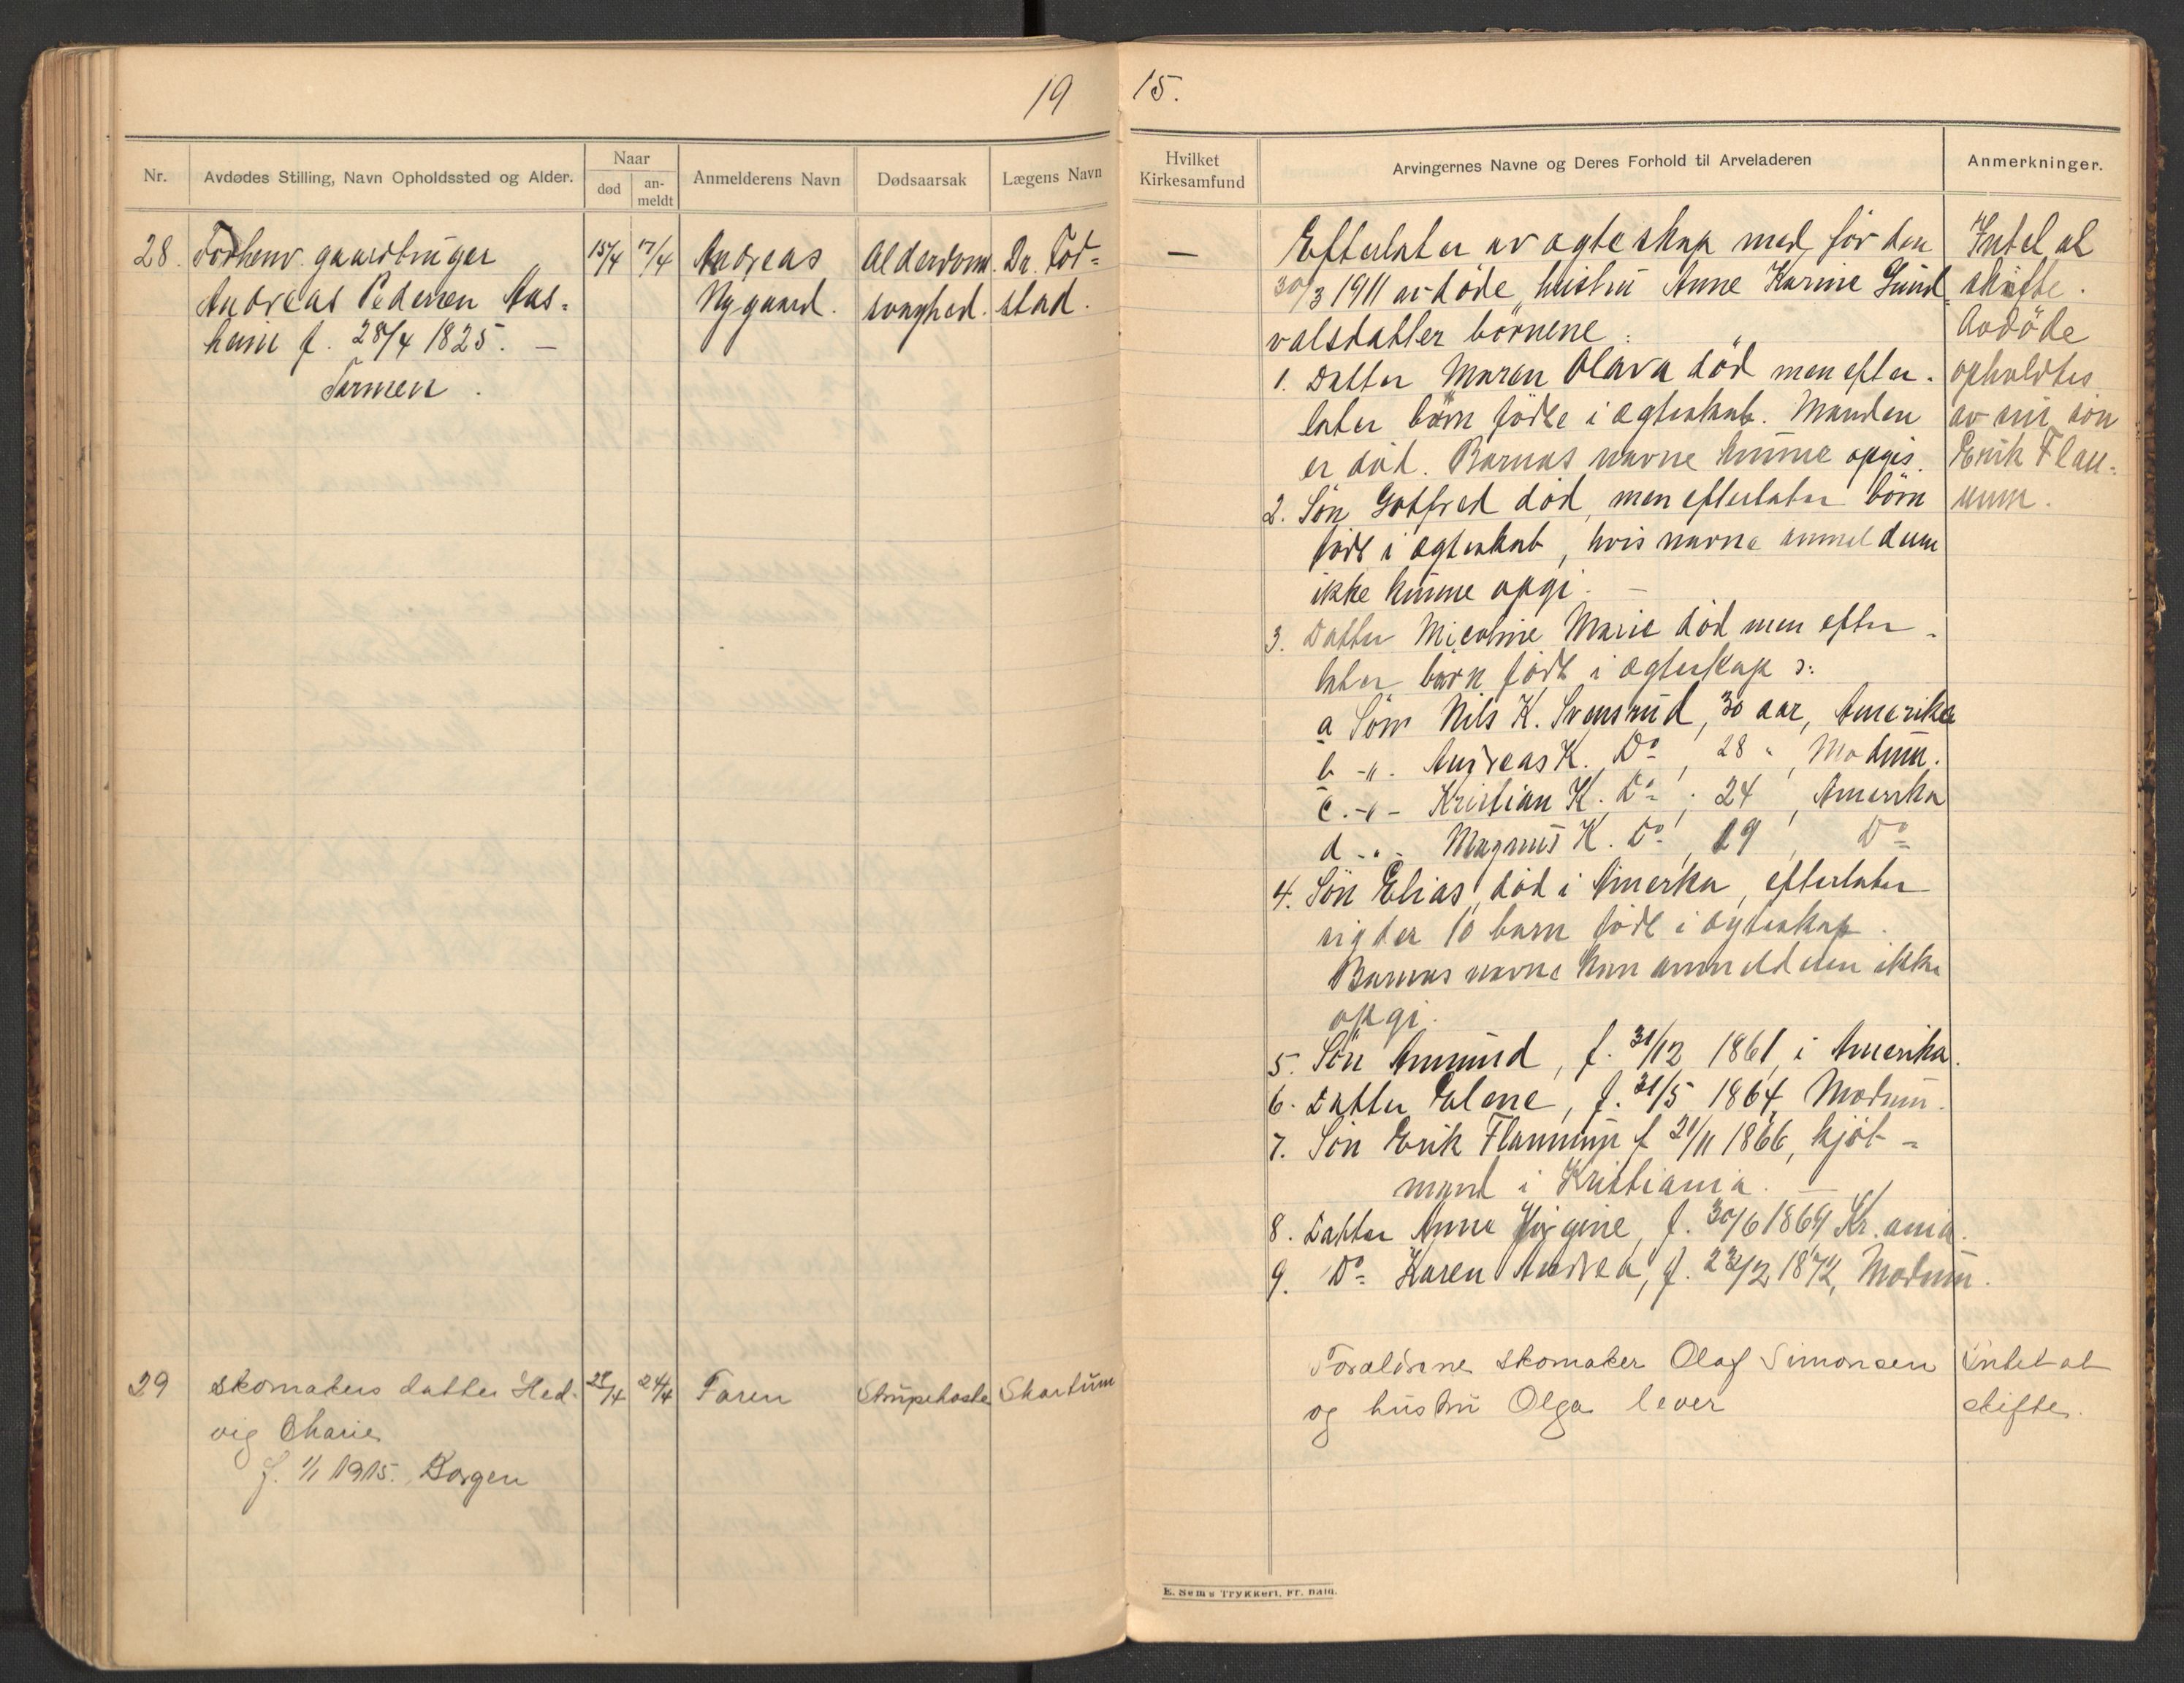 19
15.
Nr.
Avdødes Stilling, Navn Opholdssted og Alder.
Naar
død
an-
meldt
Anmelderens Navn
Dødsaarsak
Lægens Navn
Hvilket
Kirkesamfund
Arvingernes Navne og Deres Forhold til Arveladeren
Anmerkninger.
28.
Forhenv. gaardbruger
Andreas Pedersen Aas-
heim f. 28/4 1825. —
Tormen.
15/4
17/4
Andreas
Nygaard.
Alderdoms
svaghed.
Dr. Tod-
stad.
—
Efterlater av ægteskap med før den
30/3 1911 avdöde hustru Anne Karine Gund
valsdatter börnene:
1. Datter Maren Olava död men efter-
later barn födte i ægteskab. Manden
er död. Barnas navne kunne opgis.
2. Sön Gotfred död, men efterlater börn
födt i ægteskab, hvis navne anmelderen
ikke kunne opgi. —
3. Datter Nicoline Marie död men efter-
later barn födt i ægteskap ɔ:
a Sön Nils K. Svensrud, 30 aar, Amerika
b -"- Andreas K. Do, 28 " , Modum.
c. -"- Kristian K. Do, 24 ' , Amerika
d -"- Magnus K. Do, 19 ' , Do
4. Sön Elias, död i Amerka, efterlater
sig der 10 barn födt i ægteskap.
Barnas navne kan anmelderen ikke
opgi.
5. Sön Amund, f. 31/12 1861, i Amerika.
6. Datter Elene, f. 31/5 1864, Modum.
7. Sön Erik Flannum f 21/11 1866, kjöt-
mand i Kristiania. —
8. Datter Anne Jörgine, f. 30/6 1869, Kr.ania.
9. Do Karen Andrea, f. 22/2 1872, Modum.
Intet at
skifte.
Avdöde
opholdtes
av sin sön
Erik Flan-
num.
29
Skomakers datter Hed-
vig Charie
f. 1/1 1915. Borgen
22/4
24/4
Faren
Strupehoste
Skartum
Forældrene skomaker Olaf Simonsen
og hustru Olga lever
Intet at
skifte.
E. Sem's Trykkeri, Fr.hald.